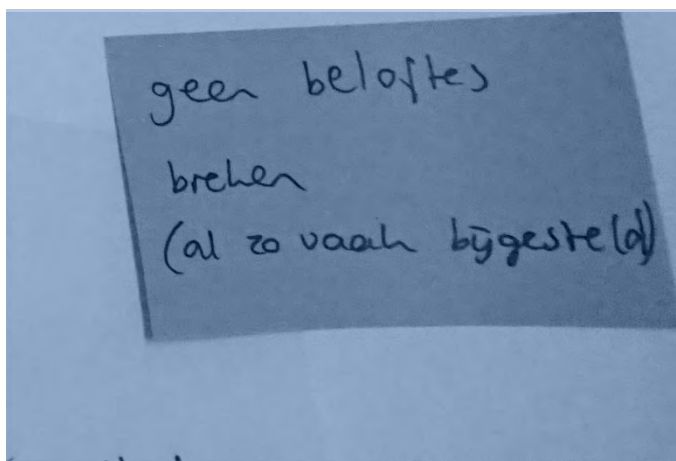 geen beloftes
breken
(al zo vaak bijgesteld)